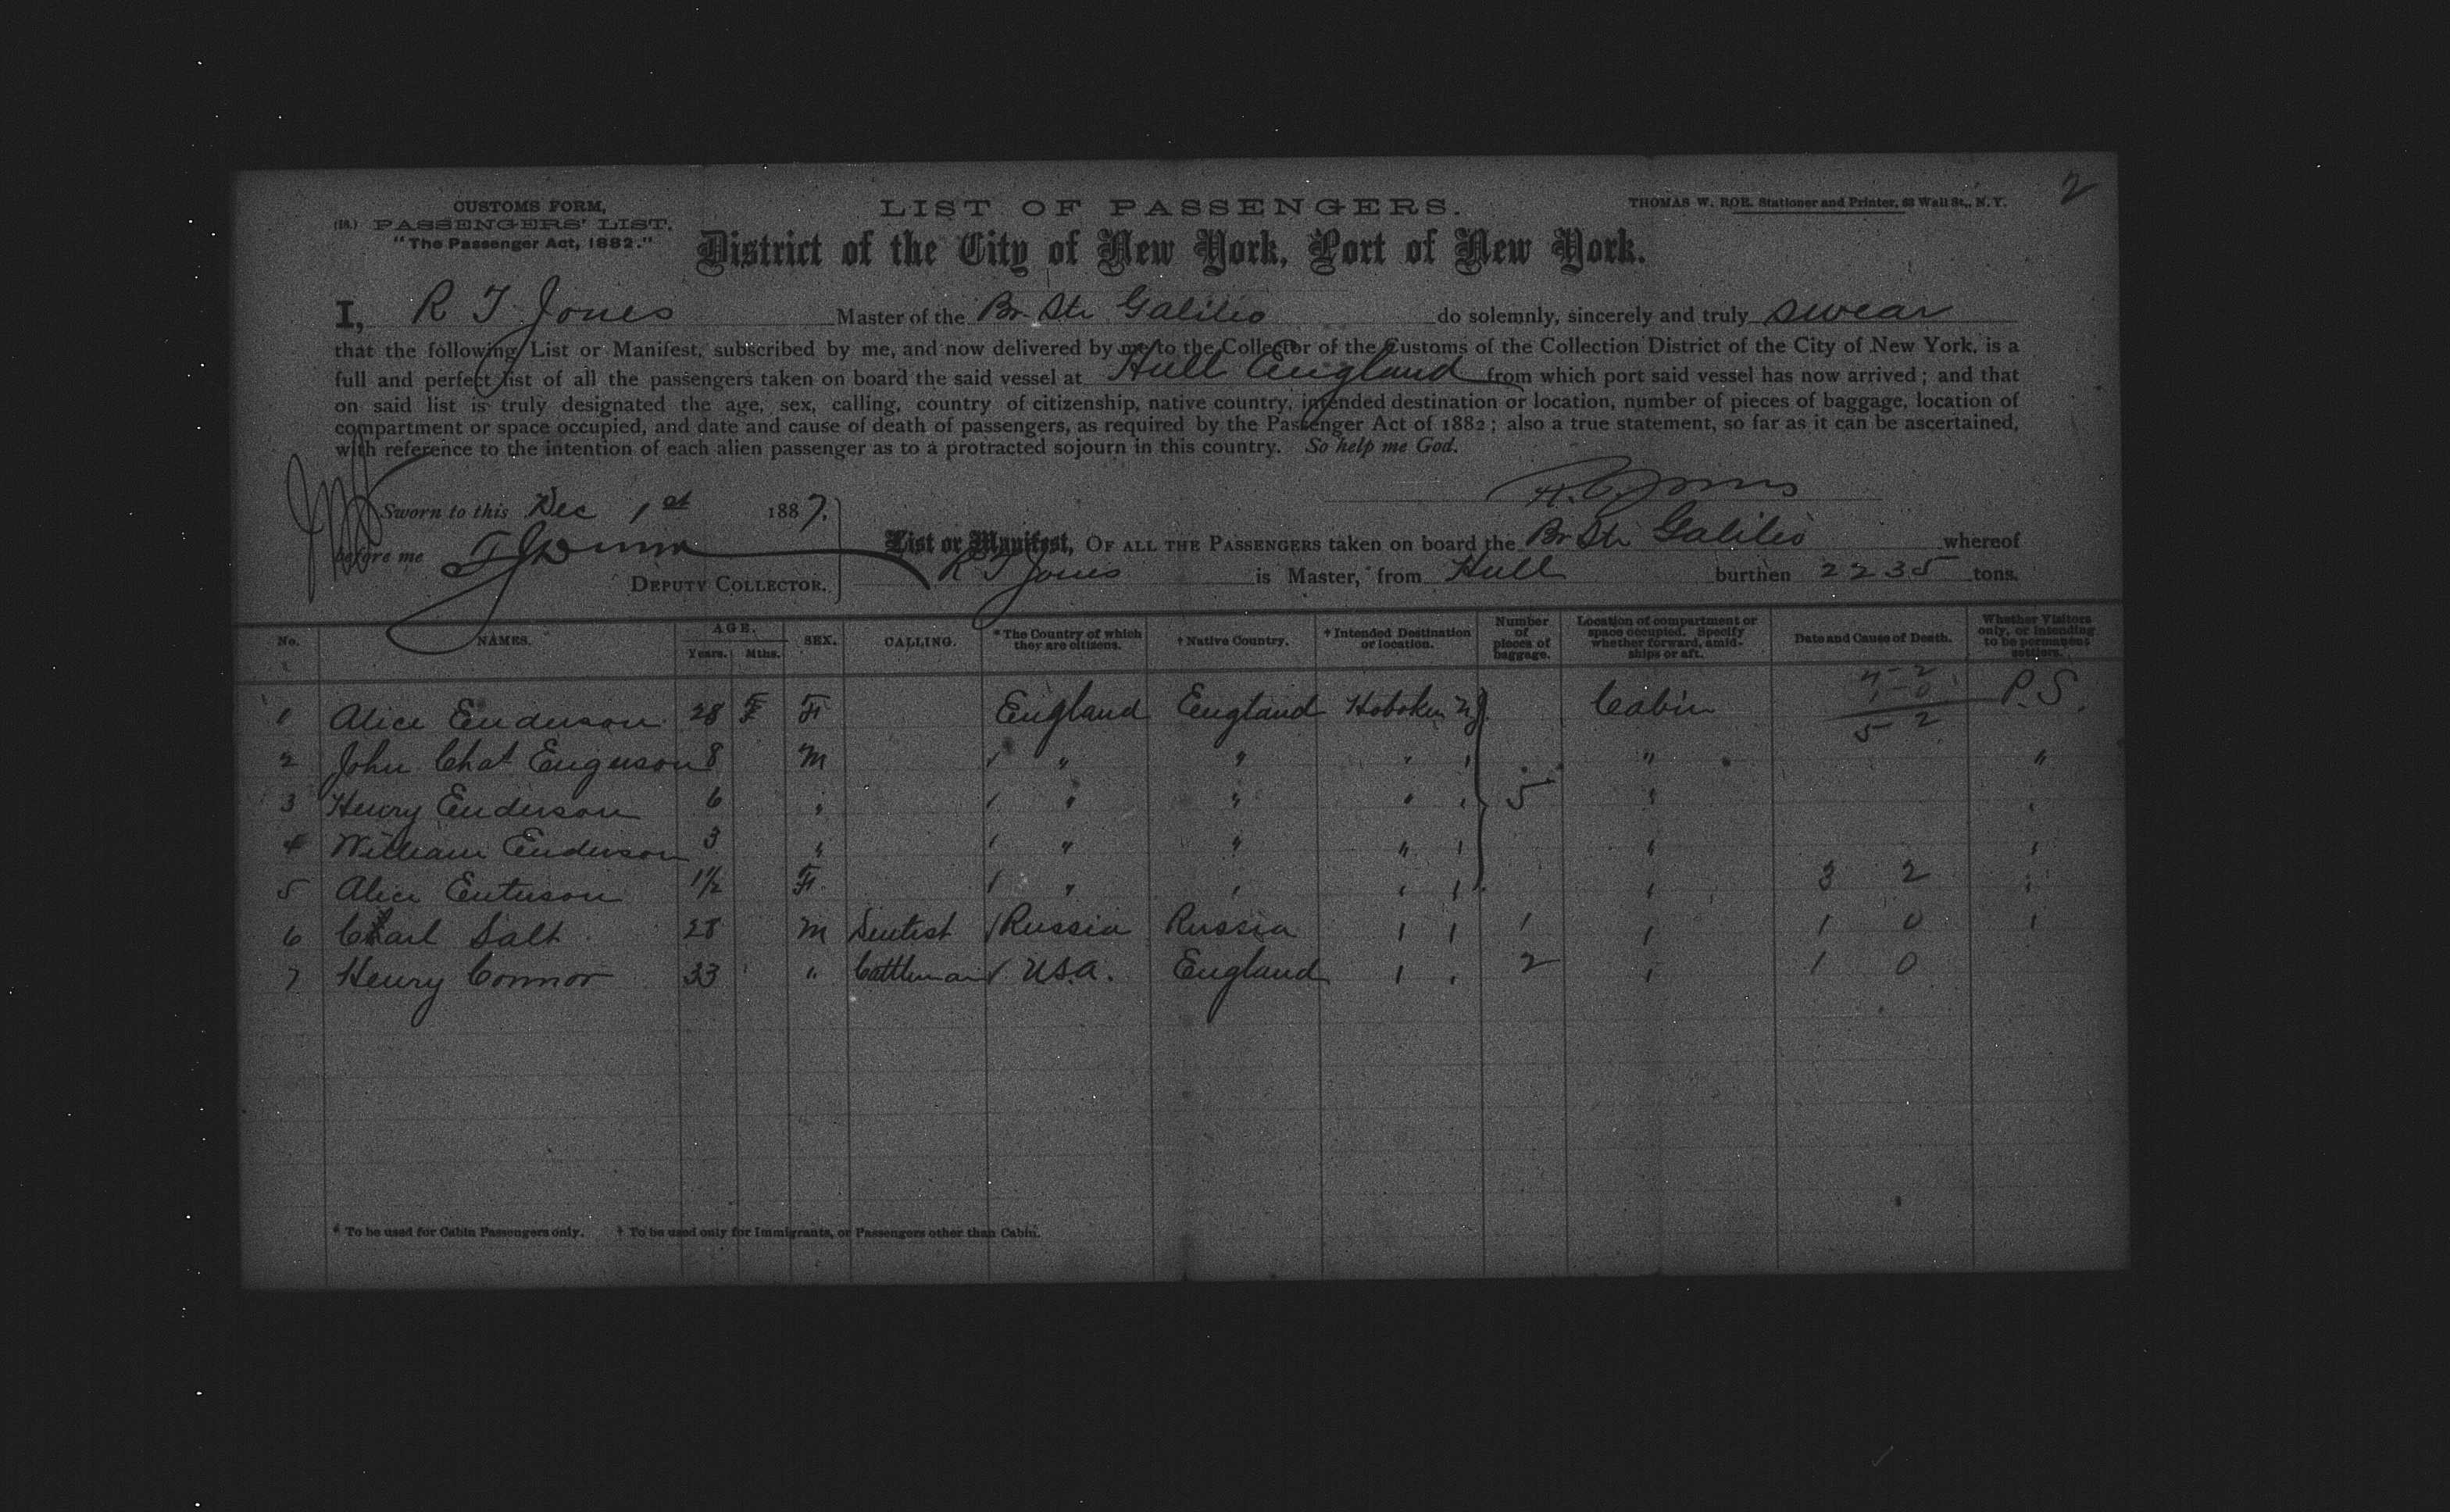 2
CUSTOMS FORM,
(18.) PASSENGERS' LIST.
"The Passenger Act, 1882."
LIST OF PASSENGERS.
THOMAS W. ROE. Stationer and Printer, 63 Wall St., N.Y.
District of the City of New York, Port of New York.
I, R T Jones Master of the Br Str Galileo do solemnly, sincerely and truly swear
that the following List or Manifest, subscribed by me, and now delivered by me to the Collector of the Customs of the Collection District of the City of New York, is a
full and perfect list of all the passengers taken on board the said vessel at Hull England from which port said vessel has now arrived; and that
on said list is truly designated the age, sex, calling, country of citizenship, native country, intended destination or location, number of pieces of baggage, location of
compartment or space occupied, and date and cause of death of passengers, as required by the Passenger Act of 1882; also a true statement, so far as it can be ascertained,
with reference to the intention of each alien passenger as to a protracted sojourn in this country. So help me God.
Sworn to this Dec 1st 1887.
before me
DEPUTY COLLECTOR.
List or Manifest, OF ALL THE PASSENGERS taken on board the Br Str Galileo whereof
R T Jones is Master, from Hull burthen 2235 tons.
No. NAMES. AGE. Years. Mths. SEX. CALLING. *The Country of which they are citizens. †Native Country. †Intended Destination or location. Number of pieces of baggage. Location of compartment or space occupied. Specify whether forward, amidships or aft. Date and Cause of Death. Whether Visitors only, or intending to be permanent settlers.
1 Alice Enderson 28 F England England Hoboken NJ Cabin 5 2 P.S.
2 John Chas Engerson 8 M " " " " " "
3 Henry Enderson 6 " " " " " 5 " "
4 William Enderson 3 " " " " " " "
5 Alice Enterson 1½ F " " " " " 3 2 "
6 Carl Salt 28 M Dentist Russia Russia " " 1 " 1 0 "
7 Henry Connor 33 " Cattleman U.S.A. England " " 2 " 1 0
* To be used for Cabin Passengers only. † To be used only for Immigrants, or Passengers other than Cabin.